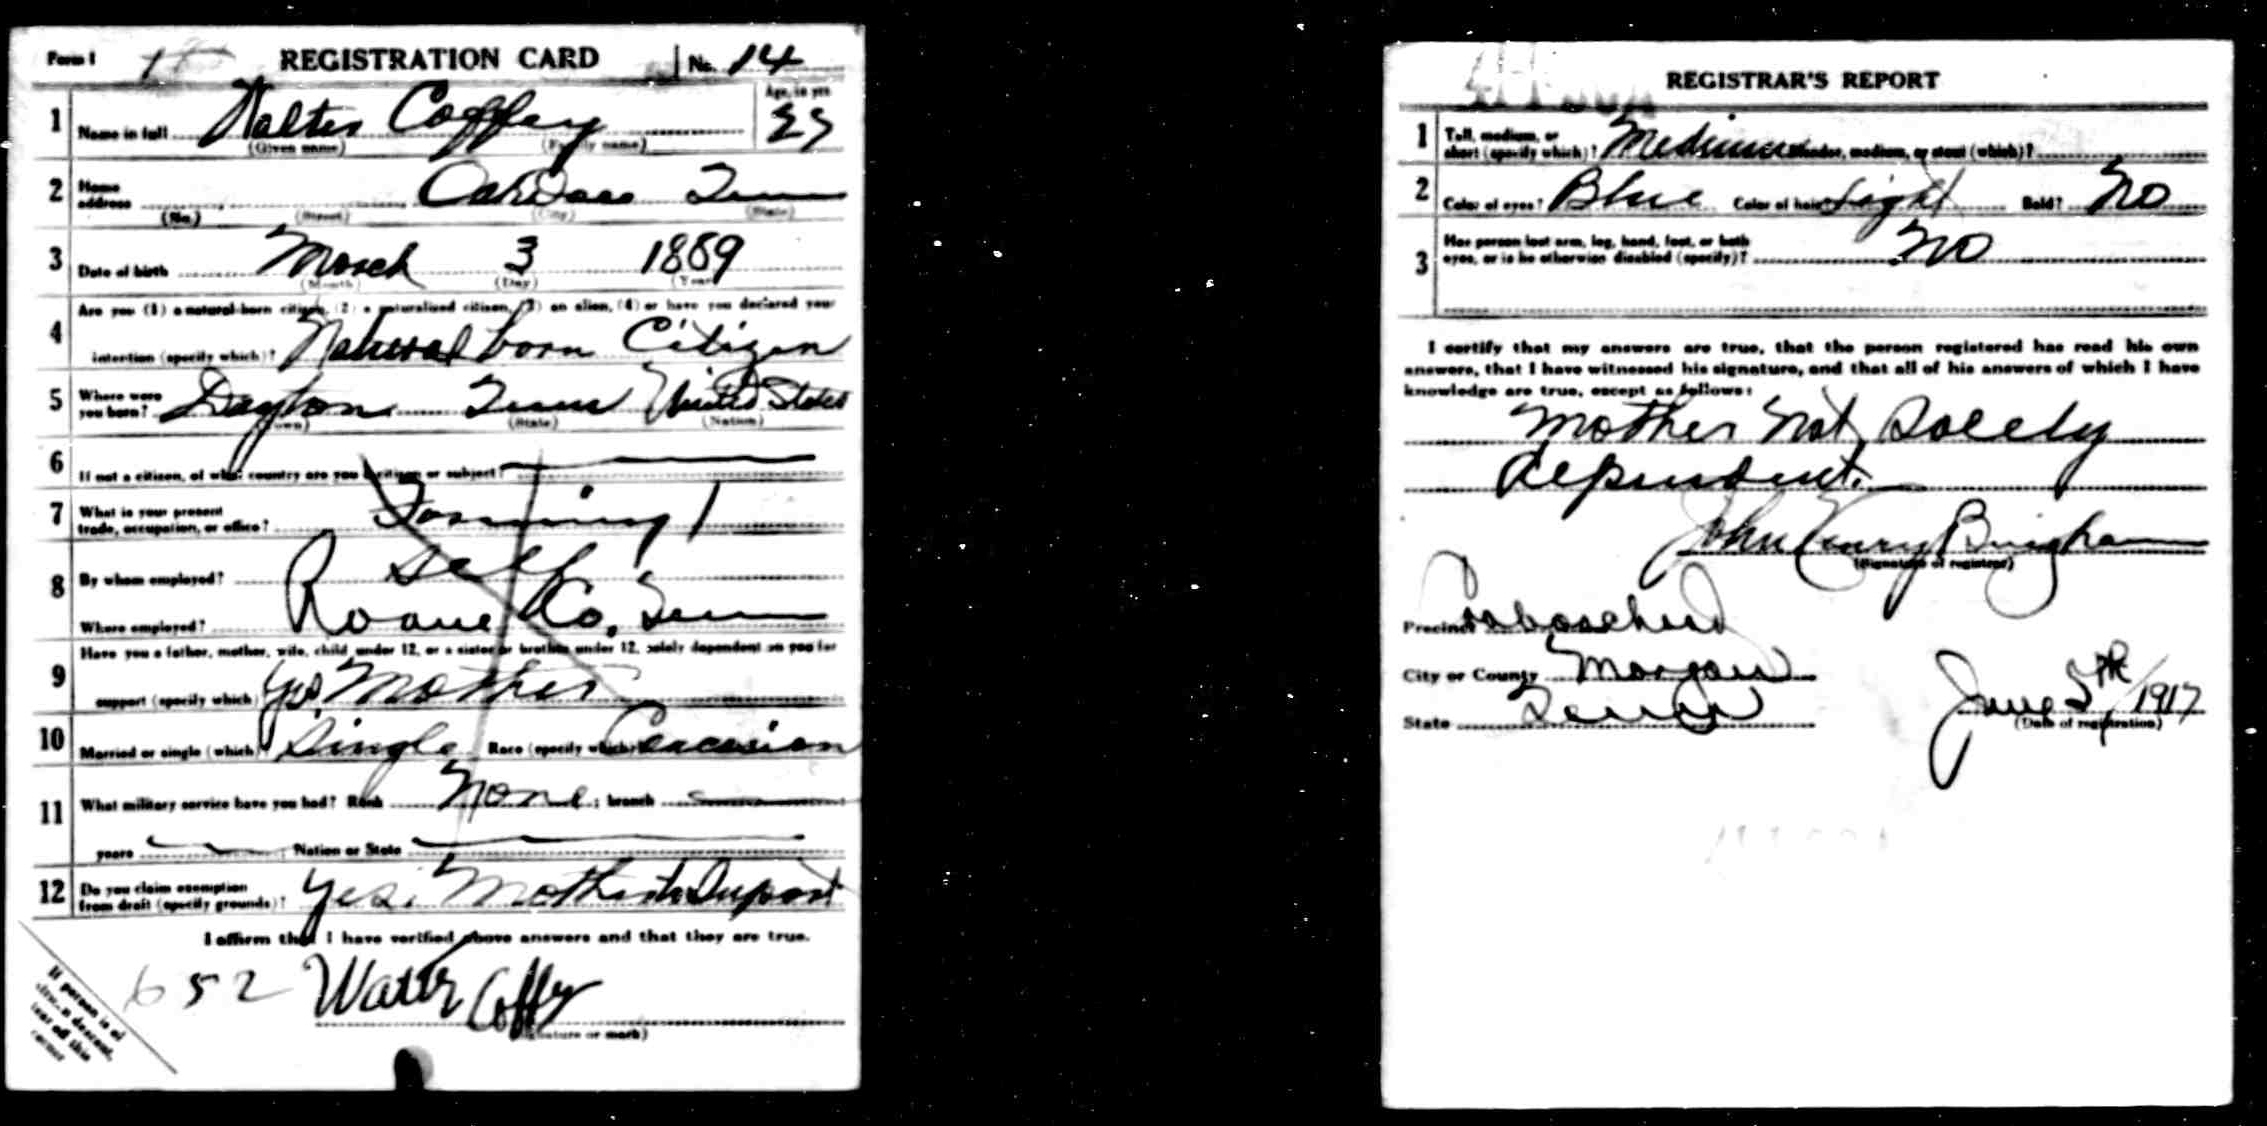 Form 1 REGISTRATION CARD No. 14
1 Name in full Walter Coffey Age, in yrs
(Given name) (Family name)
2 Home address Oakdale Tenn
(No.) (Street) (City) (State)
3 Date of birth March 3 1889
(Month) (Day) (Year)
4 Are you (1) a natural-born citizen, (2) a naturalized citizen, (3) an alien, (4) or have you declared your
intention (specify which)? Natural born Citizen
5 Where were you born? Dayton Tenn United States
(Town) (State) (Nation)
6 If not a citizen, of what country are you a citizen or subject?
7 What is your present trade, occupation, or office? Farming
8 By whom employed? Self
Where employed? Roane Co, Tenn
9 Have you a father, mother, wife, child under 12, or a sister or brother under 12, solely dependent on you for
support (specify which)? Yes, Mother
10 Married or single (which)? Single Race (specify which)? Caucasian
11 What military service have you had? Rank None; branch
years ; Nation or State
12 Do you claim exemption from draft (specify grounds)? Yes. Mother to Suport
I affirm that I have verified above answers and that they are true.
652 Walter Coffy
(Signature or mark)
If person is of
African descent,
tear off this
corner
REGISTRAR'S REPORT
1 Tall, medium, or short (specify which)? Medium Slender, medium, or stout (which)?
2 Color of eyes? Blue Color of hair? Light Bald? No
3 Has person lost arm, leg, hand, foot, or both eyes, or is he otherwise disabled (specify)? No
I certify that my answers are true, that the person registered has read his own
answers, that I have witnessed his signature, and that all of his answers of which I have
knowledge are true, except as follows:
Mother Not Solely
dependent.
John Henry Bingham
(Signature of registrar)
Precinct
City or County Morgan
State Tenn June 5th/1917
(Date of registration)